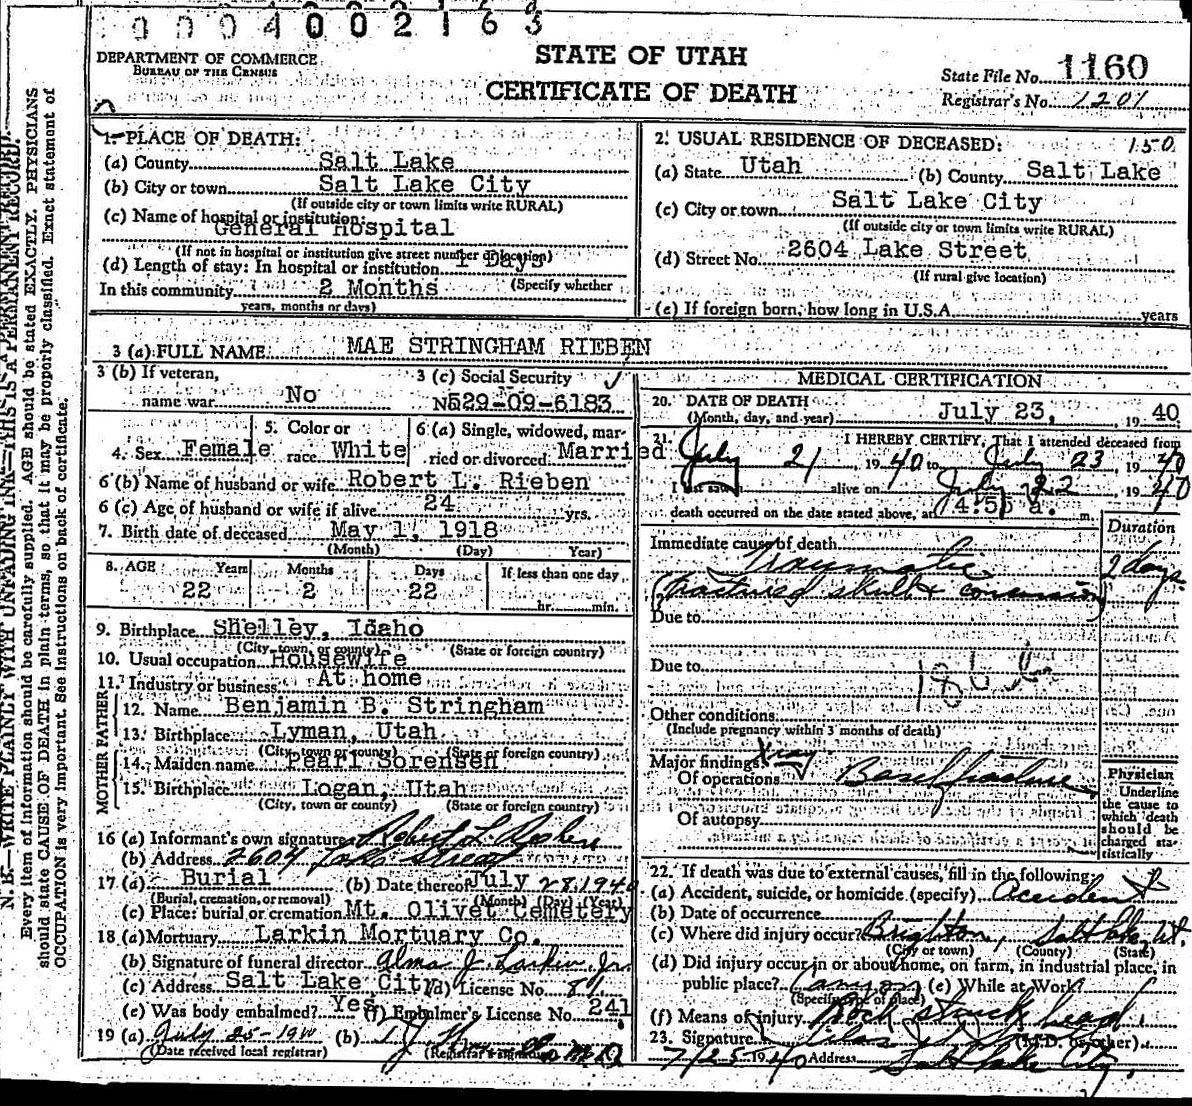 0004002163
DEPARTMENT OF COMMERCE
BUREAU OF THE CENSUS
STATE OF UTAH
CERTIFICATE OF DEATH
State File No. 1160
Registrar's No. 1201
1. PLACE OF DEATH:
(a) County Salt Lake
(b) City or town Salt Lake City
(If outside city or town limits write RURAL)
(c) Name of hospital or institution:
General Hospital
(If not in hospital or institution give street number or location)
(d) Length of stay: In hospital or institution Days
(Specify whether
In this community 2 Months
years, months or days)
2. USUAL RESIDENCE OF DECEASED: 150
(a) State Utah (b) County Salt Lake
(c) City or town Salt Lake City
(If outside city or town limits write RURAL)
(d) Street No. 2604 Lake Street
(If rural give location)
(e) If foreign born, how long in U.S.A. years
3 (a) FULL NAME MAE STRINGHAM RIEBEN
3 (b) If veteran,
name war No
3 (c) Social Security
No 529-09-6183
4. Sex Female
5. Color or
race White
6 (a) Single, widowed, mar-
ried or divorced Married
6 (b) Name of husband or wife Robert L. Rieben
6 (c) Age of husband or wife if alive 24 yrs.
7. Birth date of deceased May 1, 1918
(Month) (Day) Year)
8. AGE Years Months Days If less than one day
22 2 22 hr. min.
9. Birthplace Shelley, Idaho
(City, town, or county) (State or foreign country)
10. Usual occupation Housewife
11. Industry or business At home
FATHER
12. Name Benjamin B. Stringham
13. Birthplace Lyman, Utah
(City, town or county) (State or foreign country)
MOTHER
14. Maiden name Pearl Sorensen
15. Birthplace Logan, Utah
(City, town or county) (State or foreign country)
16 (a) Informant's own signature Robert L. Rieben
(b) Address 2604 Lake Street
17 (a) Burial (b) Date thereof July 28, 1940
(Burial, cremation, or removal) (Month) (Day) (Year)
(c) Place: burial or cremation Mt. Olivet Cemetery
18 (a) Mortuary Larkin Mortuary Co.
(b) Signature of funeral director Alma J. Larkin Jr.
(c) Address Salt Lake City (d) License No. 81
(e) Was body embalmed? Yes (f) Embalmer's License No. 241
19 (a) July 25-1940 (b)
(Date received local registrar) (Registrar's signature)
MEDICAL CERTIFICATION
20. DATE OF DEATH
(Month, day, and year) July 23, 1940
21. I HEREBY CERTIFY, That I attended deceased from
July 21, 1940 to July 23, 1940
I last saw alive on July 22, 1940
death occurred on the date stated above, at 4:55 a. m.
Duration
Immediate cause of death
Traumatic 2 days
(fractured skull & concussion)
Due to
Due to
186
Other conditions
(Include pregnancy within 3 months of death)
Major findings Xray
Of operations Basal fracture
Of autopsy
Physician
Underline
the cause to
which death
should be
charged sta-
tistically
22. If death was due to external causes, fill in the following:
(a) Accident, suicide, or homicide (specify) Accident
(b) Date of occurrence
(c) Where did injury occur? Brighton, Salt Lake Ut.
(City or town) (County) (State)
(d) Did injury occur in or about home, on farm, in industrial place, in
public place? Canyon (e) While at Work?
(Specify type of place)
(f) Means of injury Rock struck head
23. Signature (M.D. or other)
7/25 1940 Address Salt Lake City,
N. B.—WRITE PLAINLY WITH UNFADING INK—THIS IS A PERMANENT RECORD.
Every item of information should be carefully supplied. AGE should be stated EXACTLY. PHYSICIANS
should state CAUSE OF DEATH in plain terms, so that it may be properly classified. Exact statement of
OCCUPATION is very important. See instructions on back of certificate.